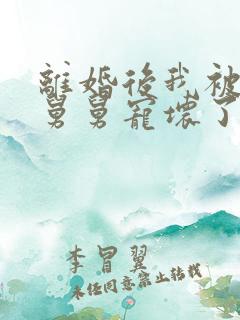 離婚後我被
舅舅寵壞了
李冒翼
未经同意禁止转载